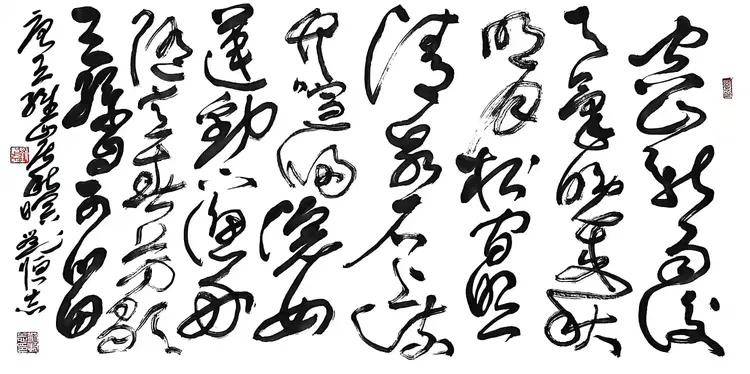 空山新雨後
天氣晚来秋
明月松间照
清泉石上流
竹喧归浣女
蓮動下漁舟
随意春芳歇
王孫自可留
唐王維山居秋暝 恒志